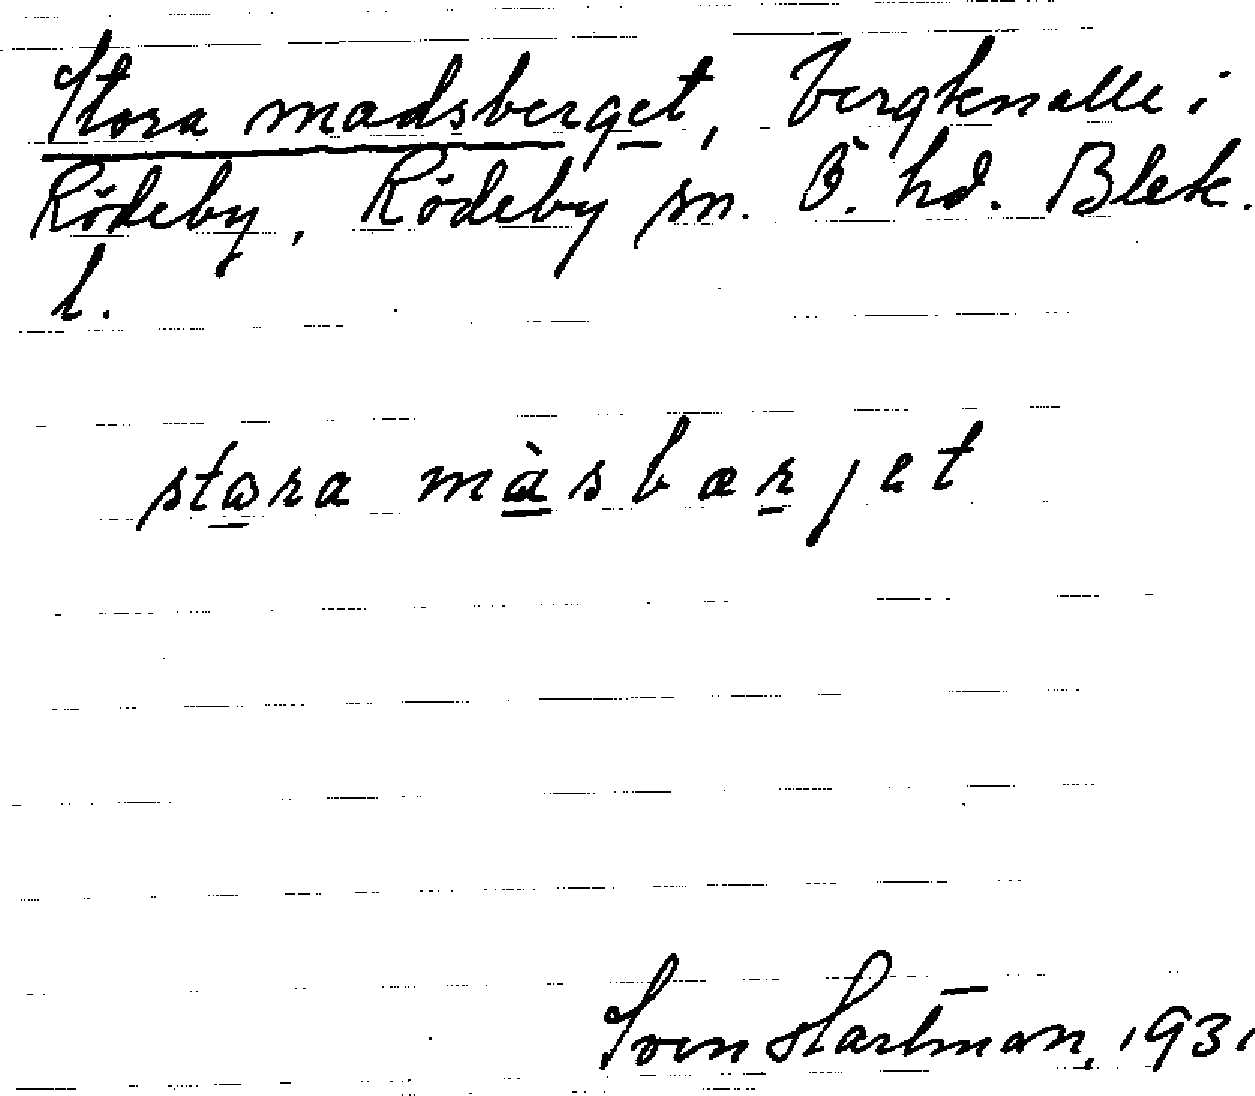 Stora madsberget, bergknalle i
Rödeby, Rödeby sn. Ö. hd. Blek.
l.
stora màsbærjet
Sven Hartman, 1931